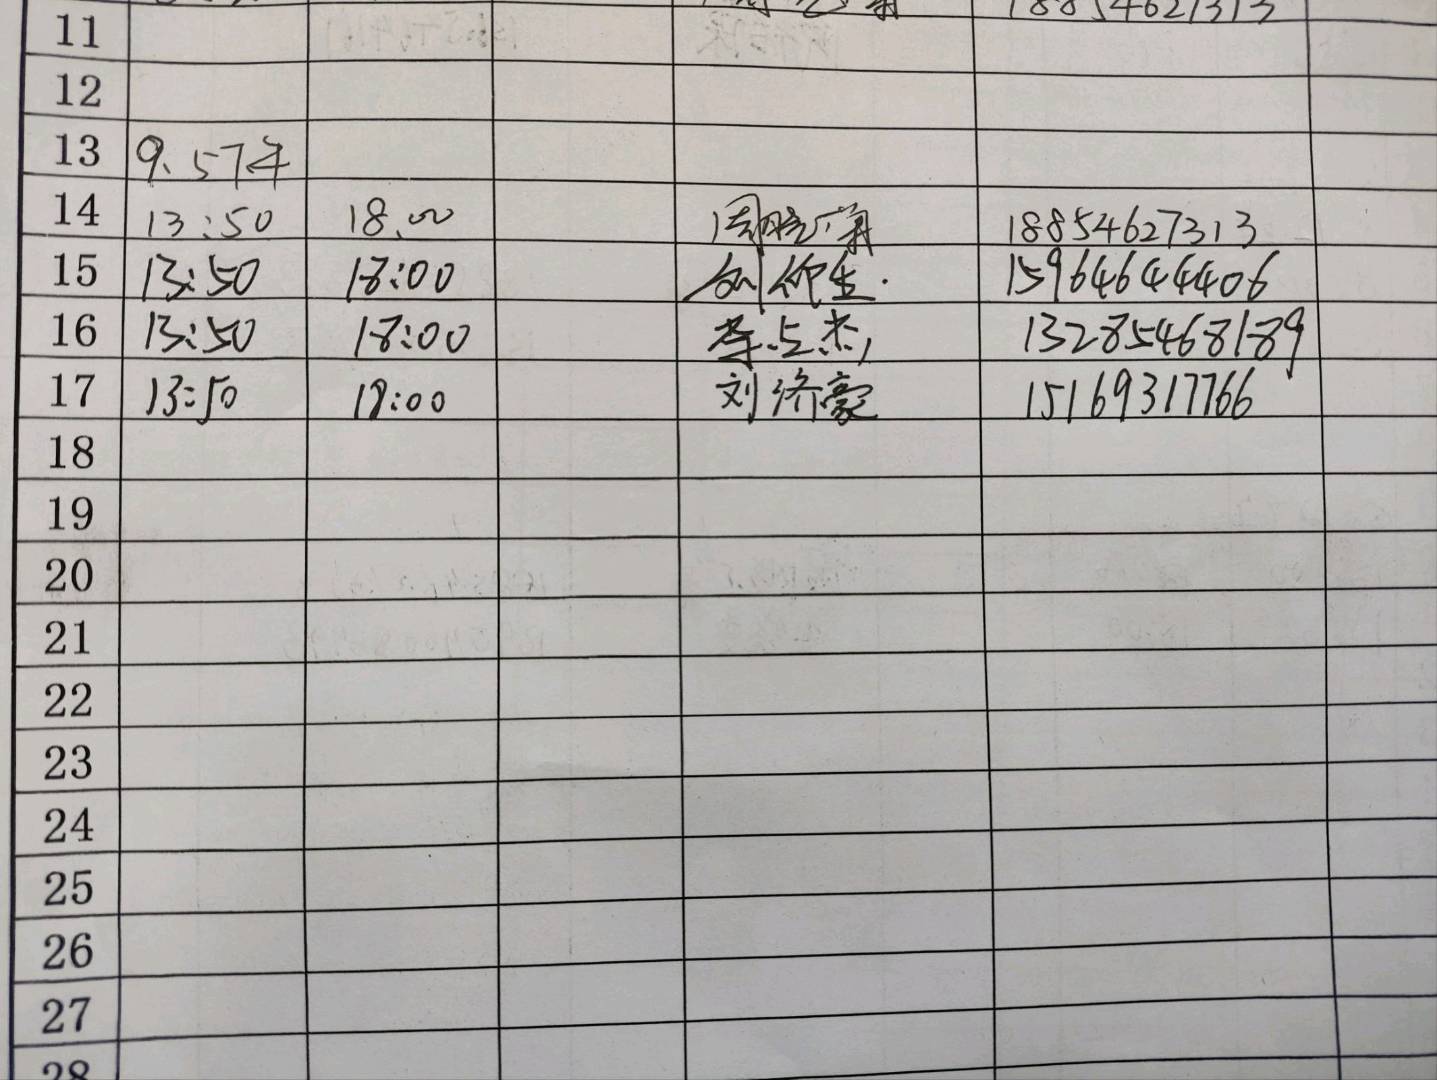 18854627313
11
12
13 9.5下午
14 13:50 18.00 周晓 18854627313
15 13:50 18:00 刘 生. 15964644406
16 13:50 18:00 李 杰 13285468189
17 13:50 18:00 刘济豪 15169317766
18
19
20
21
22
23
24
25
26
27
28